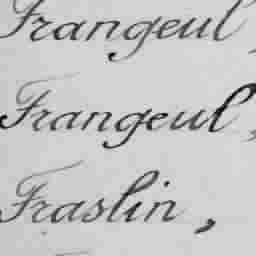 Frangeul,
Frangeul,
Fraslin,